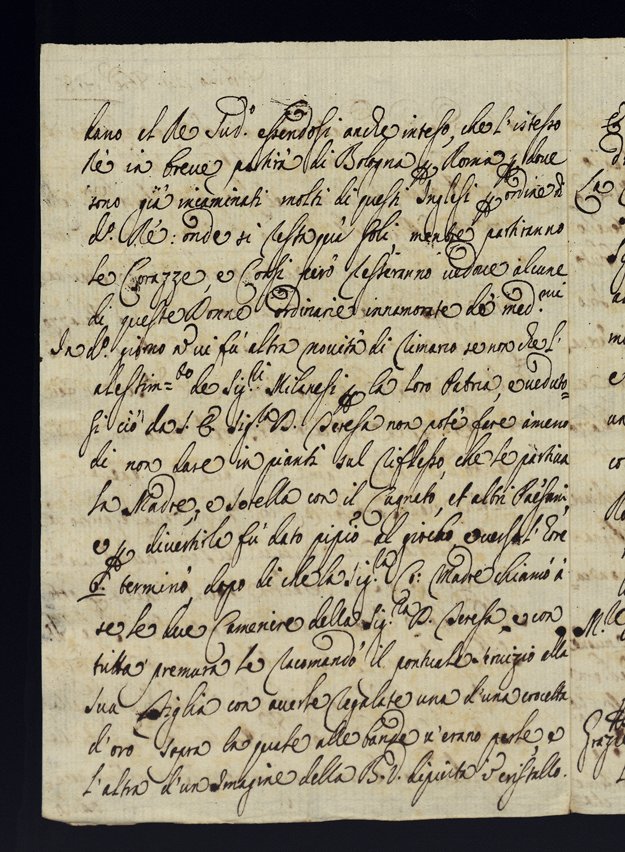 dano il Rè Sud.º essendosi anche inteso, che l'istesso
Rè in breve partirà di Bologna p Roma p dove
sono già incaminati molti di questi Inglesi p ordine d
d.º Rè: onde si resta più soli, mentre partiranno
le Corazze, e Corsi però resteranno vedove alcune
di queste Donne ordinarie innamorate de med.mi
In d.º giorno nō vi fù altra novità di rimario se non che l'
alestim=to de Sig.li Milanesi p la loro Patria, e veduto=
si ciò da S. E. Sig.ra D. Teresa non potè fare ameno
di non dare in pianti sul riflesso, che le partiva
la Madre, e Sorella con il Cugnato, et altri Paesani
e p divertirla fù dato pipio al giocho, e verso l'hore
6. terminò, dopo di che la Sig.ra Co: Madre chiamò à
se le due Cameriere della Sig.ra D. Teresa, e con
tutta premura le racomandò il pontuale servizio alla
sua Figlia con averle regalate una d'una crocetta
d'oro sopra la quale alle bande v'erano perle, e
l'altra d'un Imagine della B.V. dipinta ī cristallo.